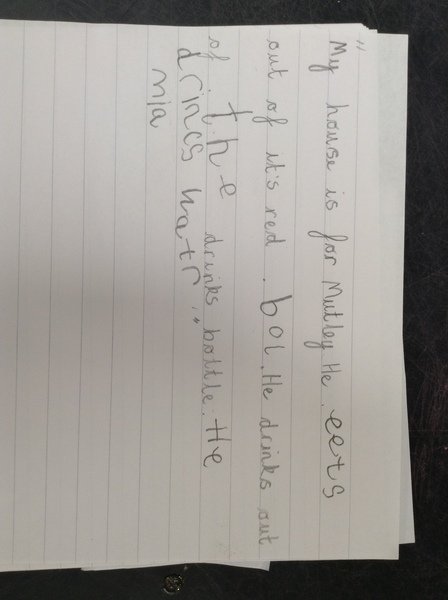 "My house is for Mutley He eets
out of it's red . bol. He drinks out
of the drinks bottle. He
drincs watr"
mia